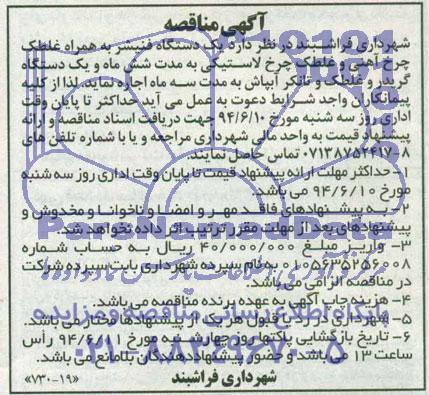 آگهی مناقصه
شهرداری فراشبند در نظر دارد یک دستگاه فنیسر به همراه غلطک
چرخ آهنی و غلطک چرخ لاستیکی به مدت شش ماه و یک دستگاه
گریدر و غلطک و تانکر آبپاش به مدت سه ماه اجاره نماید. لذا از کلیه
پیمانکاران واجد شرایط دعوت به عمل می آید حداکثر تا پایان وقت
اداری روز سه شنبه مورخ ۹۴/۶/۱۰ جهت دریافت اسناد مناقصه و ارائه
پیشنهاد قیمت به واحد مالی شهرداری مراجعه و یا با شماره تلفن های
۸-۰۷۱۳۸۷۵۲۴۱۷ تماس حاصل نمایند.
۱- حداکثر مهلت ارائه پیشنهاد قیمت تا پایان وقت اداری روز سه شنبه
مورخ ۹۴/۶/۱۰ می باشد.
۲- به پیشنهادهای فاقد مهر و امضا و ناخوانا و مخدوش و
پیشنهادهای بعد از مهلت مقرر ترتیب اثر داده نخواهد شد.
۳- واریز مبلغ ۴۰/۰۰۰/۰۰۰ ریال به حساب شماره
۰۱۰۵۶۳۵۲۵۶۰۰۸ به نام سپرده شهرداری بابت سپرده شرکت
در مناقصه الزامی می باشد.
۴- هزینه چاپ آگهی به عهده برنده مناقصه می باشد.
۵- شهرداری در رد یا قبول هر یک از پیشنهادها مختار می باشد.
۶- تاریخ بازگشایی پاکتها روز چهارشنبه مورخ ۹۴/۶/۱۱ رأس
ساعت ۱۳ می باشد و حضور پیشنهاددهندگان بلامانع می باشد.
شهرداری فراشبند
«۷۳۰-۱۹»
پایگاه اطلاع رسانی مناقصه و مزایده
۰۲۱-۸۸۳۴۹۶۷۰-۵